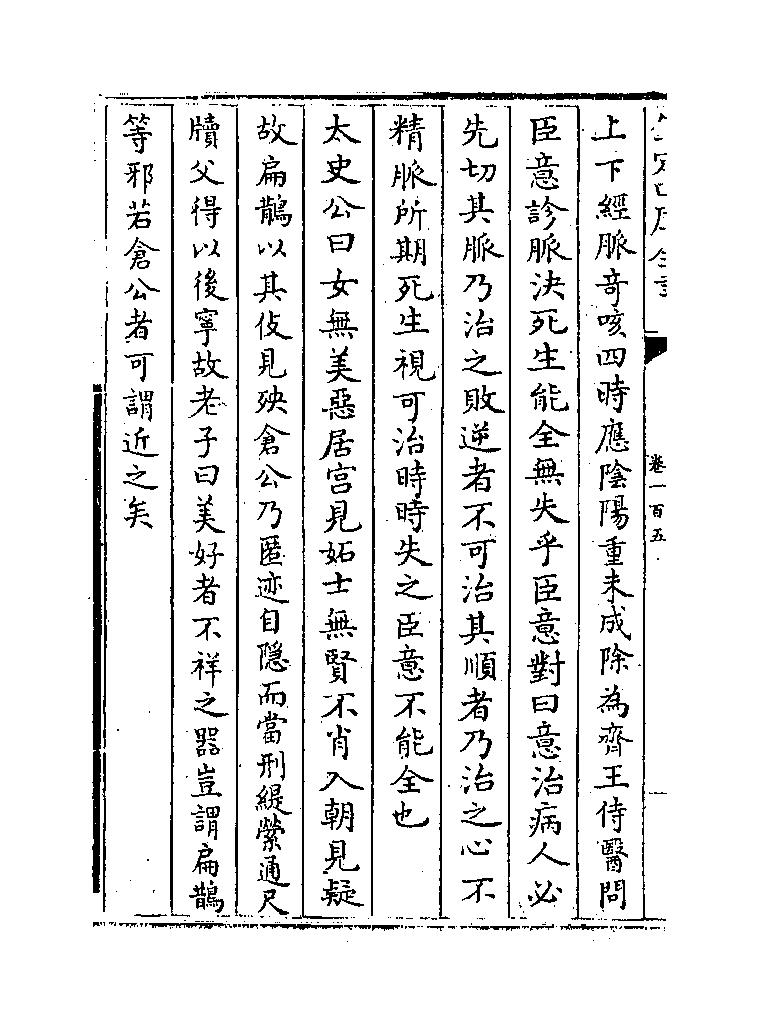 卷一百五
上下經脈奇咳四時應陰陽重未成除為齊王侍醫問
臣意診脈決死生能全無失乎臣意對曰意治病人必
先切其脈乃治之敗逆者不可治其順者乃治之心不
精脈所期死生視可治時時失之臣意不能全也
太史公曰女無美惡居宫見妬士無賢不肖入朝見疑
故扁鵲以其伎見殃倉公乃匿迹自隱而當刑緹縈通尺
牘父得以後寧故老子曰美好者不祥之器豈謂扁鵲
等邪若倉公者可謂近之矣